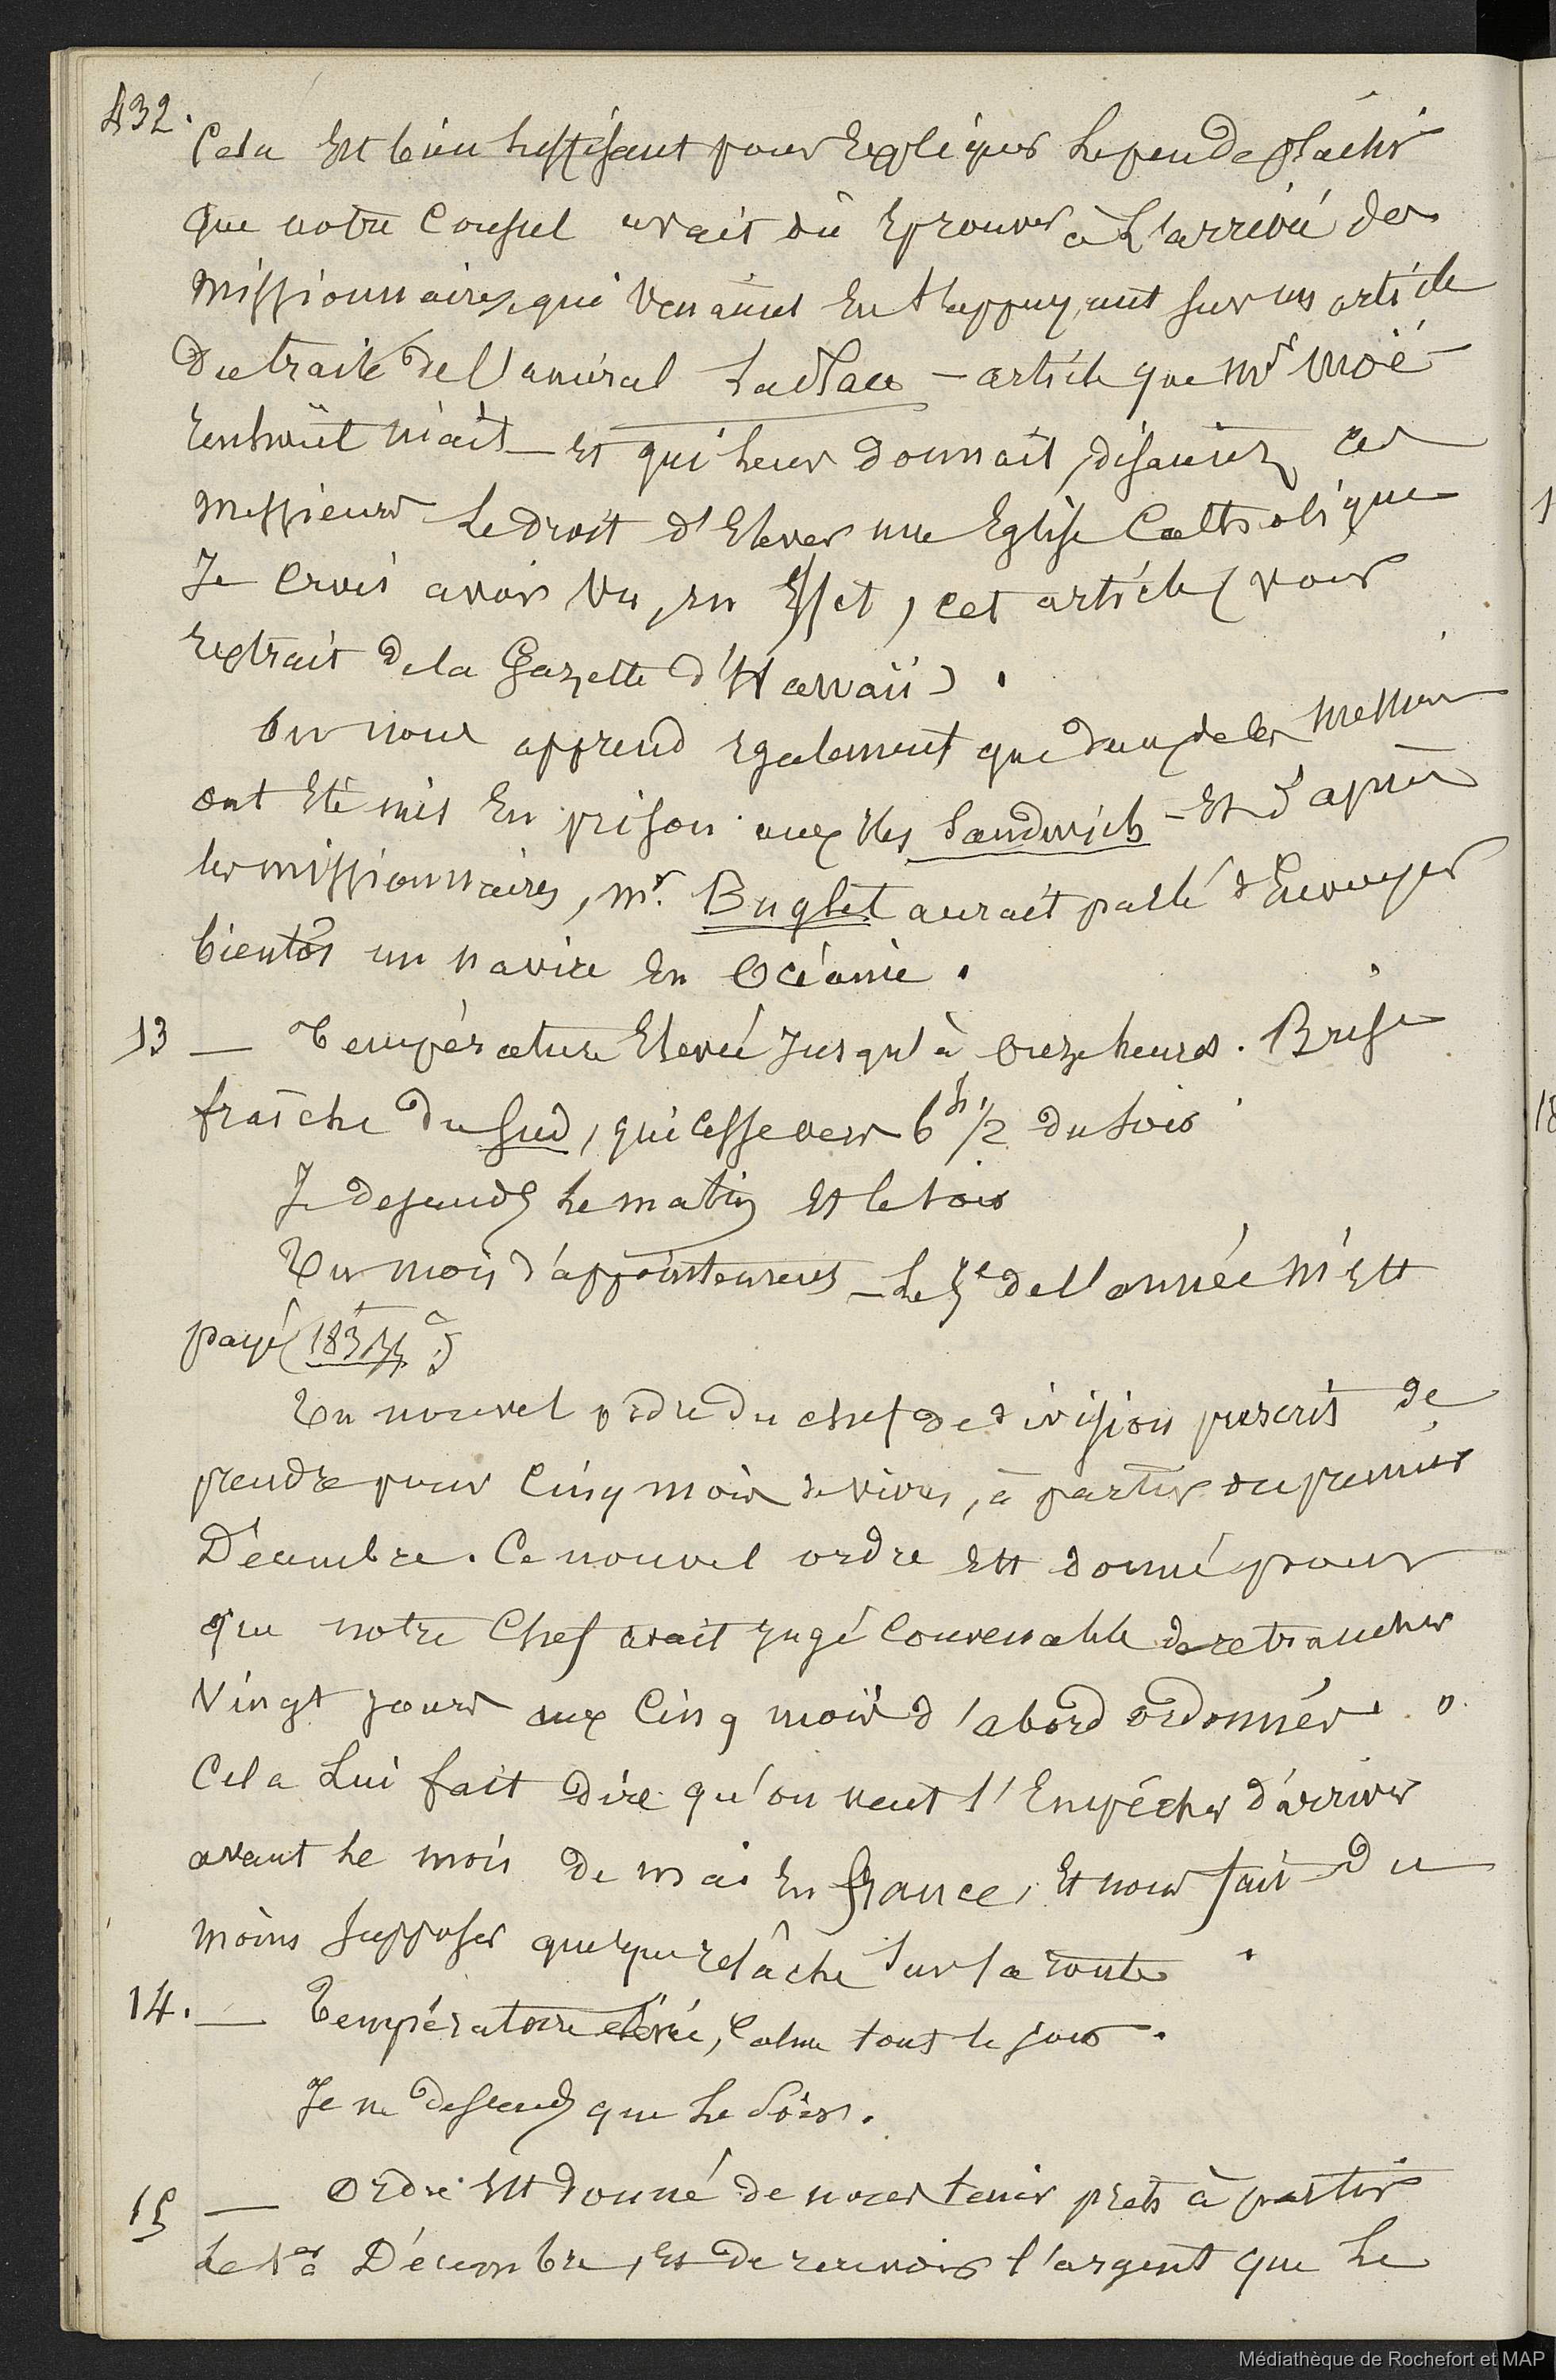 432.
Cela est bien suffisant pour expliquer le peu de plaisir
que notre Consul avait dû éprouver à l'arrivée des
missionnaires, qui venaient en s'appuyant sur un article
du traité de l'amiral Laplace - article que Mr Moë
renhoüt niait - et qui leur donnait, disaient ces
messieurs le droit d'élever une Eglise Catholique
Je crois avoir vu, en effet, cet article (voir
extrait de la Gazette d'Hawaïi).
On nous apprend egalement que deux de ces messieurs
ont été mis en prison aux Iles Sandwich - et d'après
les missionnaires, Mr. Buglet aurait parlé d'envoyer
bientôt un navire en Océanie.
13 — Température élevée jusqu'à onze heures. Brise
fraîche du Sud, qui cesse vers 6h 1/2 du soir
Je descends le matin et le soir
Un mois d'appointements - le de l'année m'est
payé
Un nouvel ordre du chef de division prescrit de
prendre pour cinq mois de vivres, à partir du premier
Décembre. Ce nouvel ordre est donné pour
que notre Chef avait jugé convenable de retrancher
vingt jours aux cinq mois d'abord ordonnés.
Cela lui fait dire qu'on veut l'empécher d'arriver
avant le mois de mai en France, et nous fait du
moins supposer quelque relâche sur la route.
14. — Température élevée, calme tout le jour.
Je ne descends que le soir.
15 — Ordre est donné de nous tenir prets à partir
le 1er Décembre, et de recevoir l'argent que le
Médiathèque de Rochefort et MAP